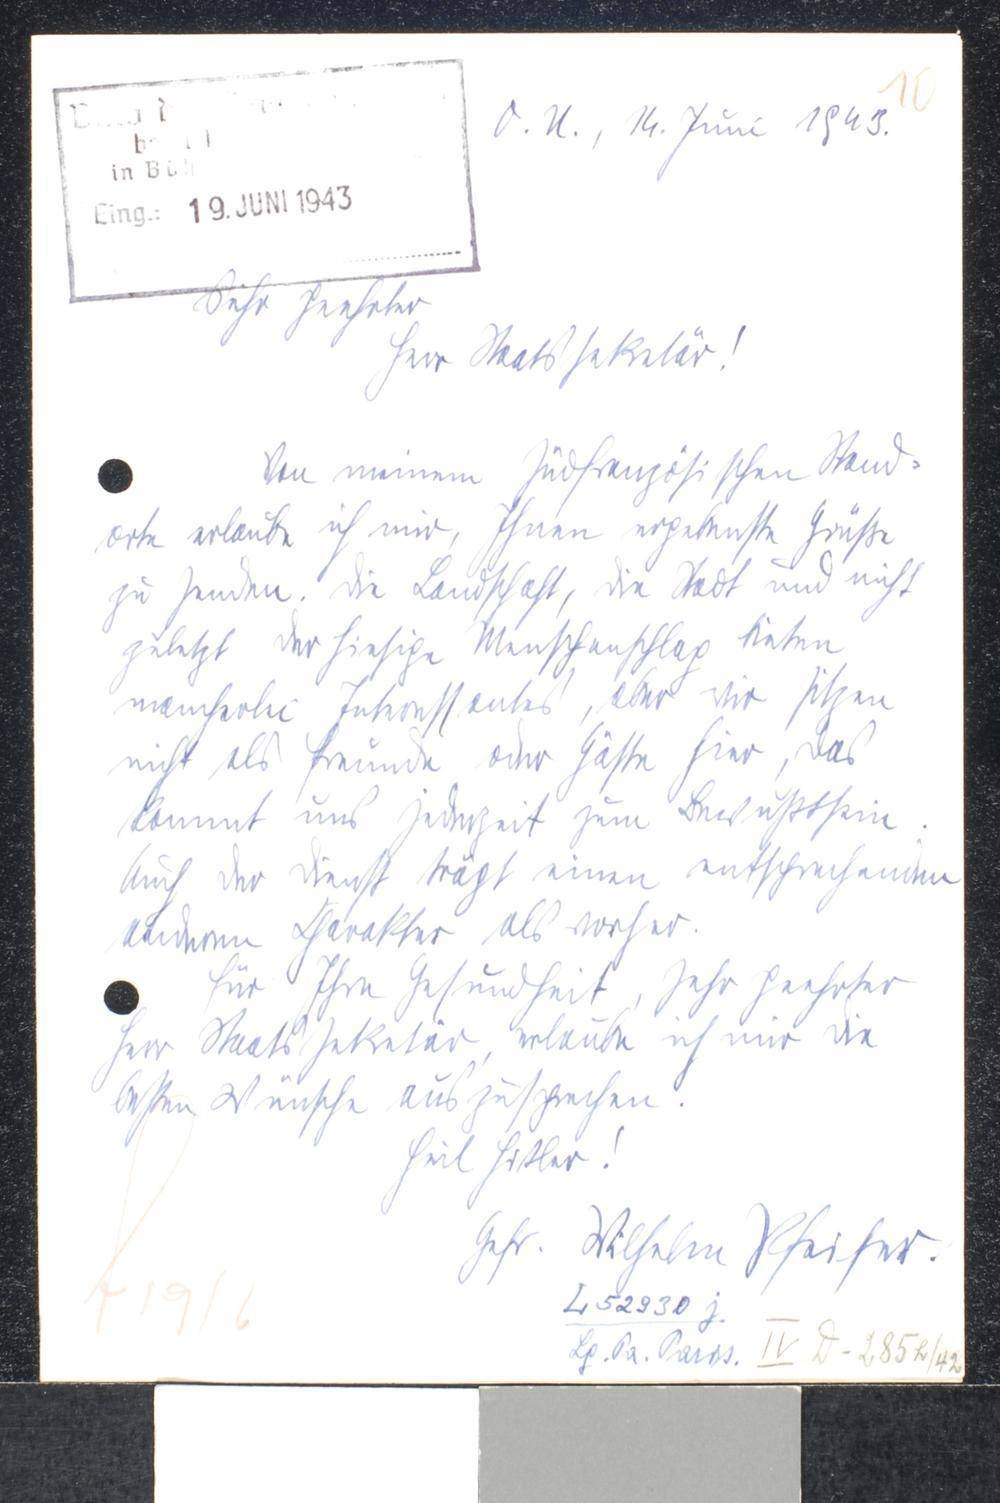 10
O. U., 14. Juni 1943.
in Bö
Eing.: 19. JUNI 1943
Sehr geehrter
Herr Staatssekretär!
Von meinem südfranzösischen Stand-
orte erlaube ich mir, Ihnen ergebenste Grüße
zu senden. Die Landschaft, die Stadt und nicht
zuletzt der hiesige Menschenschlag bieten
mancherlei Interessantes, aber wir sitzen
nicht als Freunde oder Gäste hier, das
kommt uns jederzeit zum Bewußtsein.
Auch der Dienst trägt einen entsprechenden
anderen Charakter als vorher.
Für Ihre Gesundheit, sehr geehrter
Herr Staatssekretär, erlaube ich mir die
besten Wünsche auszusprechen.
Heil Hitler!
Gefr. Wilhelm Pfeifer.
L 52930 j.
Lg. Pa. Paris. IV D - 285 /42
19/6